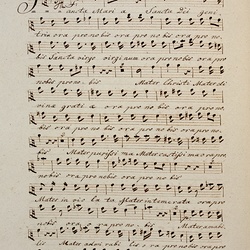 Sancta Mari a Sancta Dei geni
trix ora pro nobis ora pro nobis ora pro no
bis Sancta virgo virginum ora pro nobis ora pro
nobis pro no bis Mater Christi Mater di
vinae gratiae ora pro nobis
ora pro nobis ora pro nobis ora pro no
bis Mater purissima Mater castissima ora pro
nobis ora pro nobis ora pro no bis
Mater in vio la ta Mater intemerata ora pro
nobis ora pro no bis Mater amabi
lis Mater admirabi lis ora pro nobis ora pro